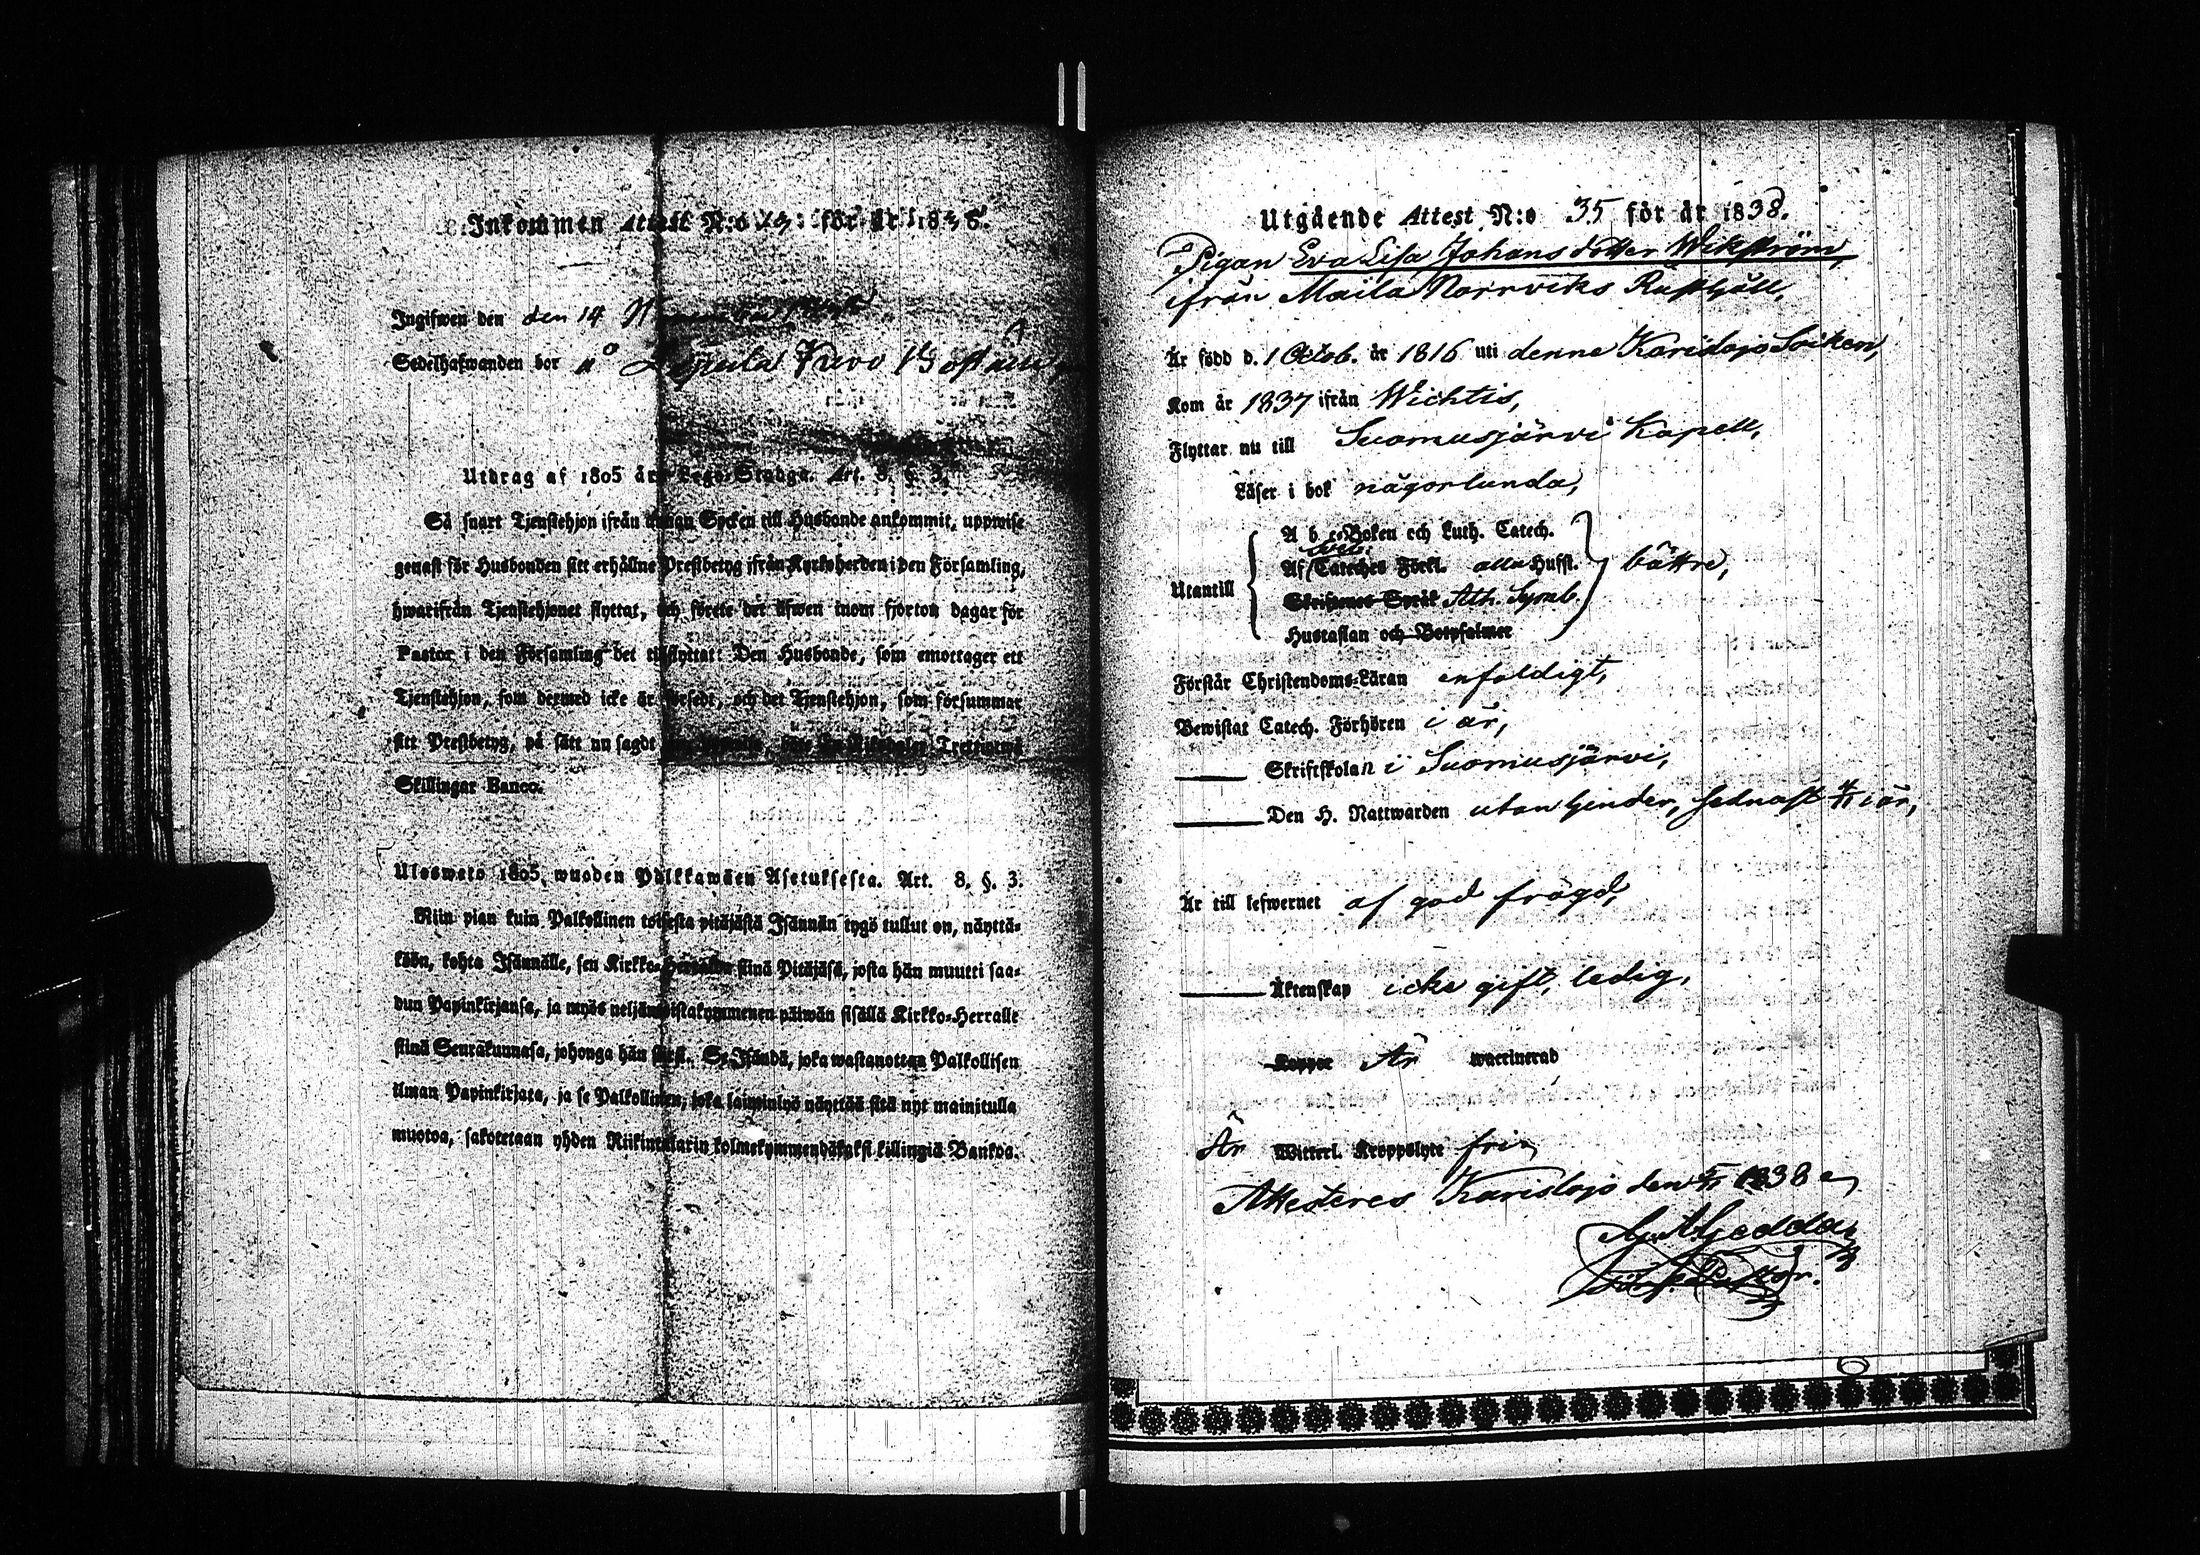 Inkommen Attest N:o för år 1838.
Ingifwen den den 14
Sedelhafwanden bor
Utdrag af 1805 års Lego-Stadga. Art. 8. §. 3.
Så snart Tjenstehjon ifrån annan Socken till Husbonde ankommit, uppwise
genast för Husbonden sitt erhållne Prestbetyg ifrån Kyrkoherden i den Församling,
hwarifrån Tjenstehjonet flyttat, och förete det äfwen inom fjorton dagar för
Pastor i den Församling det tillflyttat: Den Husbonde, som emottager ett
Tjenstehjon, som dermed icke är försedt, och det Tjenstehjon, som försummar
sitt Prestbetyg, på sätt nu sagdt Trettiotwå
Skillingar Banco.
Ulosweto 1805 wuoden Palkkawäen Asetuksesta. Art. 8. §. 3.
Niin pian kuin Palkollinen toisesta pitäjästä Isännän tygö tullut on, näyttä-
köön, kohta Isännälle, sen Kirkko-Herralda siinä Pitäjäsä, josta hän muutti saa-
dun Papinkirjansa, ja myös neljäntoistakymmenen päiwän sisällä Kirkko-Herralle
siinä Seurakunnasa, johonga hän siirsi. Se Isändä, joka wastanottaa Palkollisen
ilman Papinkirjata, ja se Palkollinen, joka laiminlyö näyttää sitä nyt mainitulla
muotoa, sakotetaan yhden Riikintalarin kolmekymmendäkaksi killingiä Bankoa.
Utgående Attest N:o 35 för år 1838.
Pigan Eva Lisa Johansdotter Wikström,
ifrån Maila Norrviks Rusthåll,
Är född d. 1 Octob. år 1816 uti denne Karislojo Socken,
Kom år 1837 ifrån Wichtis,
Flyttar nu till Suomusjärvi Kapell,
Läser i bok någorlunda,
A b c-Boken och Luth. Catech.
Sveb.
Af Cateches Förkl. alla Hufst. bättre,
Utantill
Skriftenes Språk Ath. Symb.
Hustaflan och Botpsalmer
Förstår Christendoms-Läran enfaldigt,
Bewistat Catech. Förhören i år,
Skriftskolan i Suomusjärvi,
Den H. Nattwarden utan hinder, sednast 4/11 i år,
Är till lefwernet af god frägd,
Äktenskap icke gift, ledig,
Koppor Är waccinerad
Är Witterl. Kroppslyte fri,
Attesteres Karislojo den 1838